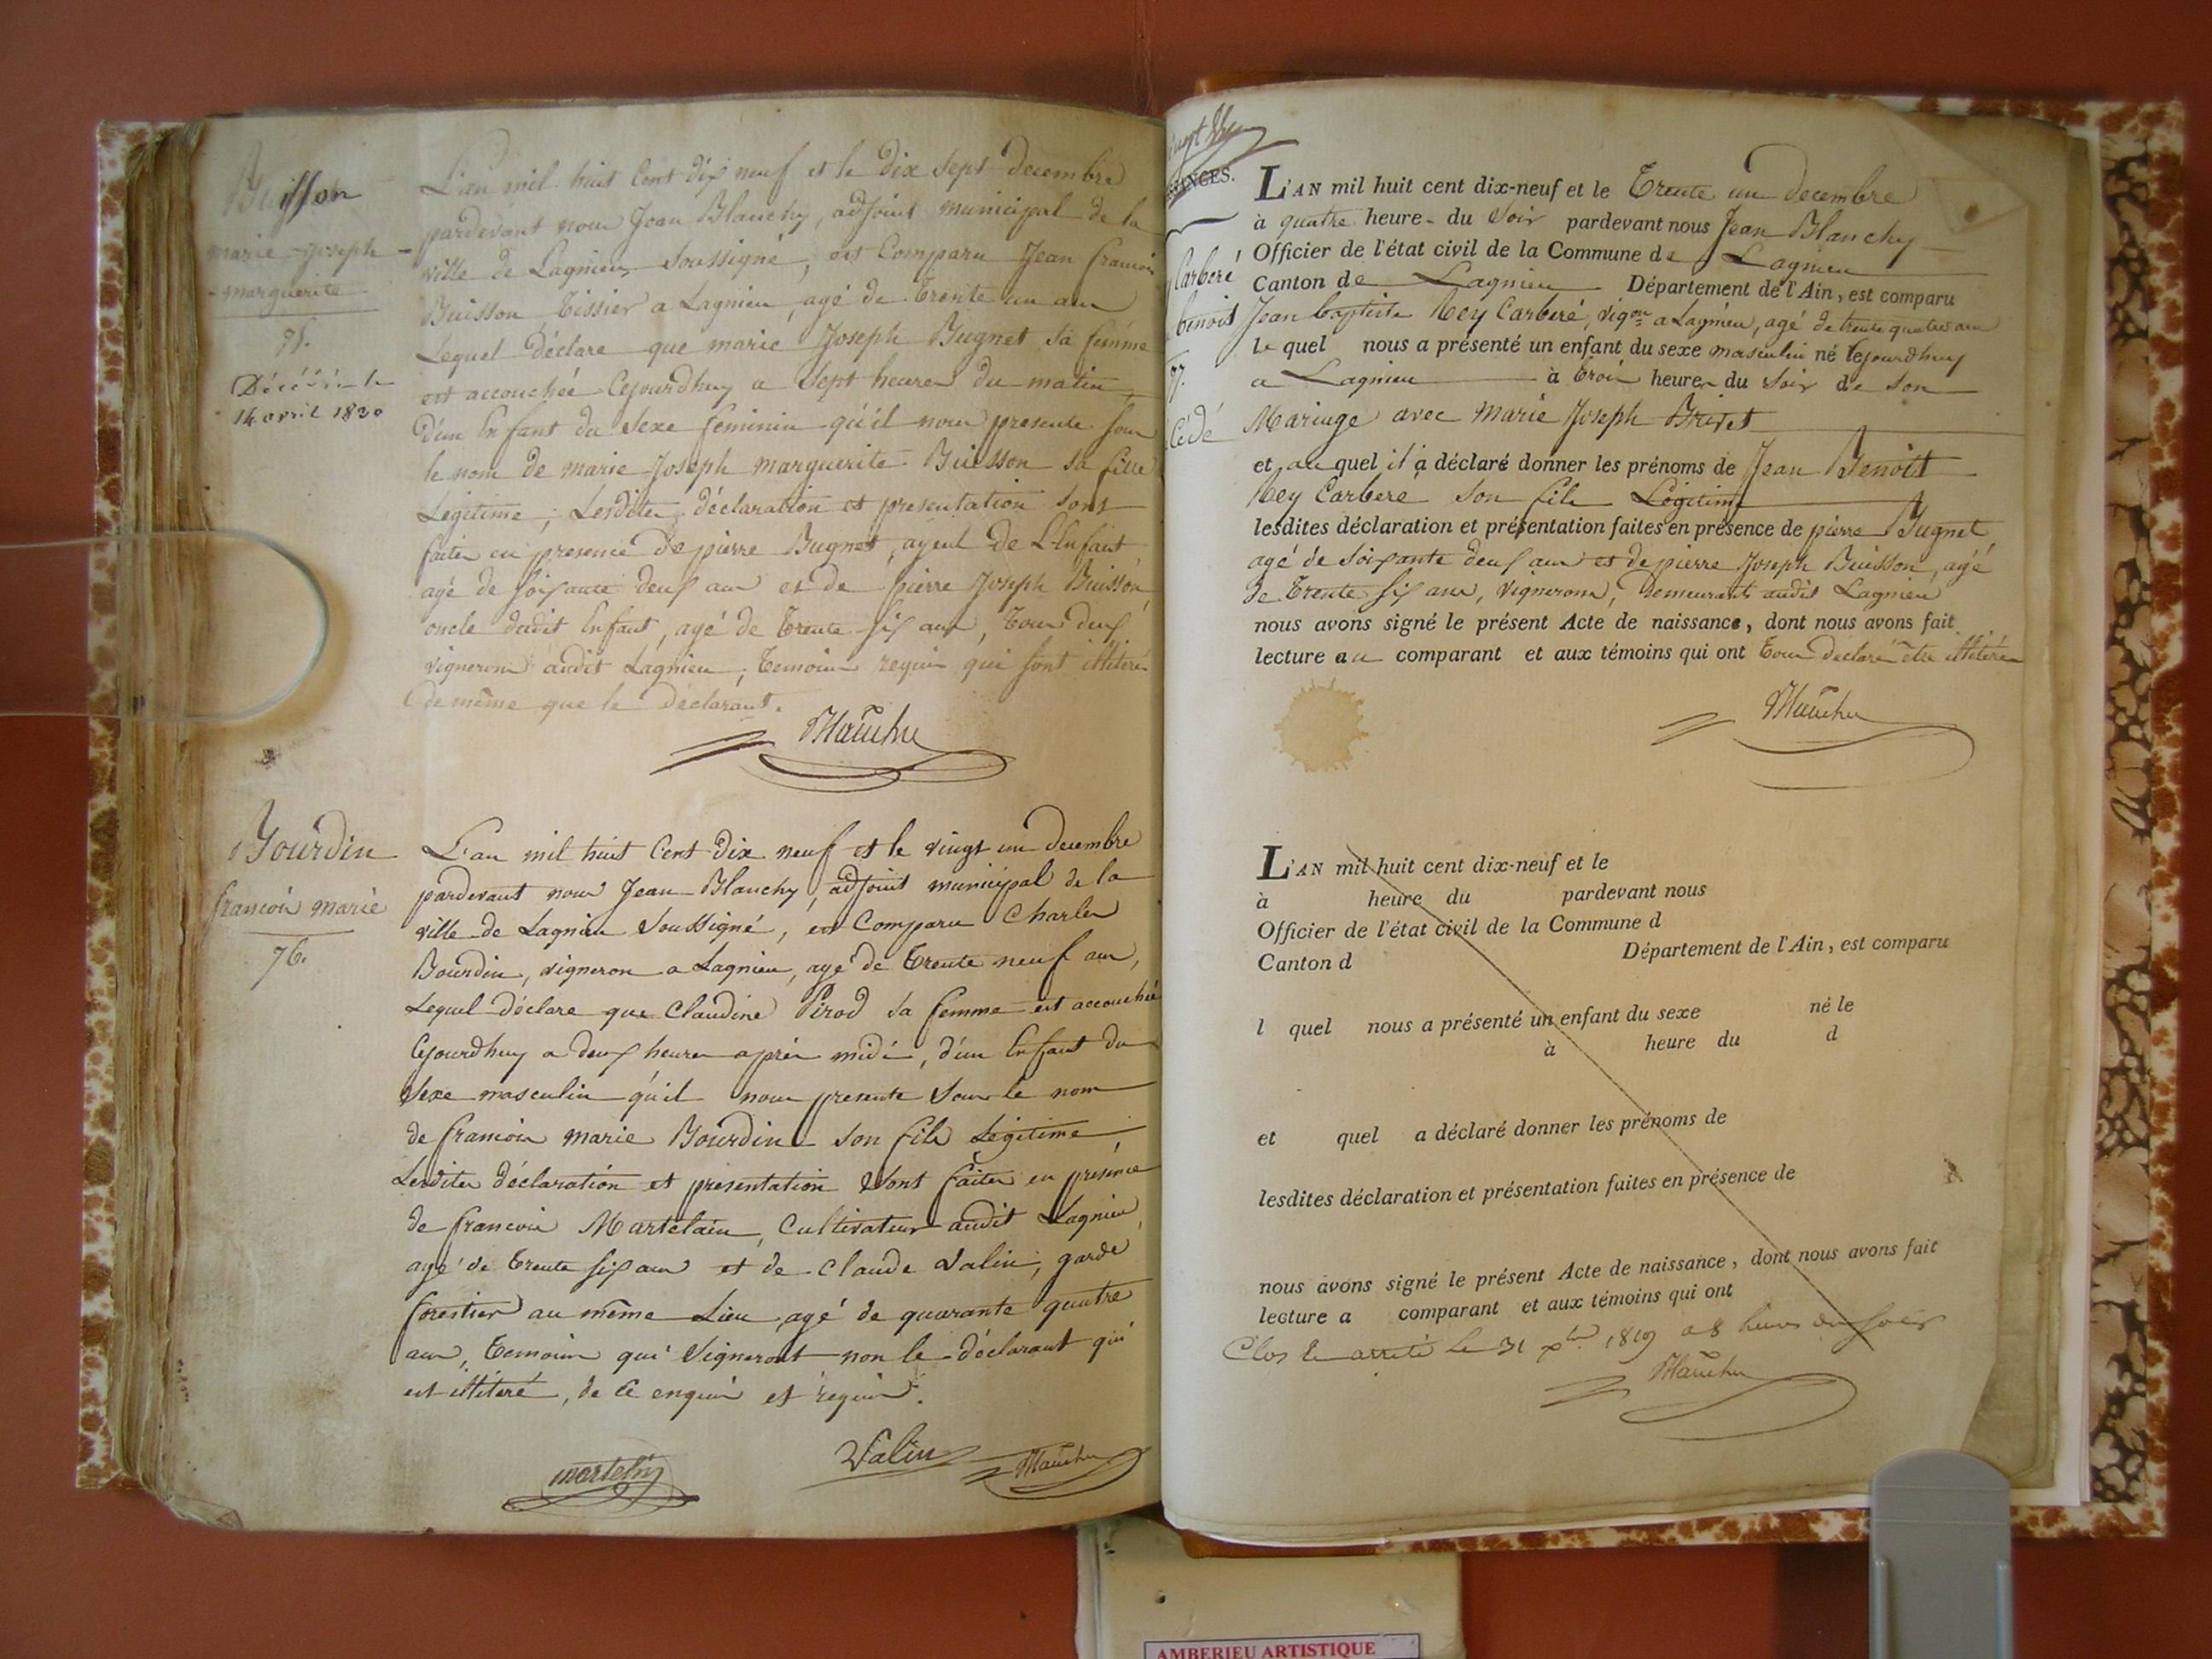 Buisson
marie Joseph
marguerite
75.
Décédée le
14 avril 1820
L'an mil huit Cent dix neuf et le dix sept decembre
pardevant nous Jean Blanchy, adjoint municipal de la
ville de Lagnieu Soussigné, est Comparu Jean francois
Buisson tissier a Lagnieu, agé de trente un ans
Lequel déclare que marie Joseph Bugnet sa femme
est accouchée Cejourdhuy a Sept heures du matin
d'un Enfant du Sexe feminin qu'il nous presente sous
le nom de marie Joseph marguerite Buisson sa fille
Légitime; Lesdites déclaration et presentation sont
faites en presence de pierre Bugnet, ayeul de L'Enfant
agé de soixante deux ans et de pierre Joseph Buisson
oncle dudit Enfant, agé de trente six ans, tous deux
vignerons audit Lagnieu; temoins requis qui sont illitérés
de même que le déclarant.
Blanchy
Bourdin
francois marie
76.
L'an mil huit Cent dix neuf et le vingt un decembre
pardevant nous Jean Blanchy, adjoint municipal de la
ville de Lagnieu Soussigné, est Comparu Charles
Bourdin, vigneron a Lagnieu, agé de trente neuf ans,
Lequel déclare que Claudine Pirod sa femme est accouchée
Cejourdhuy a deux heures après midi, d'un Enfant du
Sexe masculin qu'il nous presente Sous le nom
de francois marie Bourdin son fils Légitime,
Lesdites déclaration et presentation Sont faites en présence
de francois Martelain, Cultivateur audit Lagnieu,
agé de trente six ans et de Claude Valin, garde
forestier au même Lieu, agé de quarante quatre
ans, temoins qui Signeront non le déclarant qui
est illitéré, de ce enquis et requis.
martelin
Valin
Blanchy
Carberé
benoit
77.
cédé
L'AN mil huit cent dix-neuf et le Trente un decembre
à quatre heures du Soir pardevant nous Jean Blanchy
Officier de l'état civil de la Commune de Lagnieu
Canton de Lagnieu Département de l'Ain, est comparu
Jean baptiste Rey Carberé, vigon a Lagnieu, agé de trente quatre ans
Le quel nous a présenté un enfant du sexe masculin né Cejourdhuy
a Lagnieu à trois heures du Soir de Son
Mariage avec Marie Joseph Brivet
et au quel il a déclaré donner les prénoms de Jean Benoit
Rey Carberé Son fils Légitime
lesdites déclaration et présentation faites en présence de pierre Bugnet
agé de soixante deux ans et de pierre Joseph Buisson, agé
de trente six ans, vignerons, demeurants audit Lagnieu
nous avons signé le présent Acte de naissance, dont nous avons fait
lecture au comparant et aux témoins qui ont tous declaré être illitérés
Blanchy
L'AN mil huit cent dix-neuf et le
à heure du pardevant nous
Officier de l'état civil de la Commune d
Canton d Département de l'Ain, est comparu
l quel nous a présenté un enfant du sexe né le
à heure du d
et quel a déclaré donner les prénoms de
lesdites déclaration et présentation faites en présence de
nous avons signé le présent Acte de naissance, dont nous avons fait
lecture a comparant et aux témoins qui ont
Clos et arreté le 31 xbre 1819 a 8 heures du soir
Blanchy
AMBERIEU ARTISTIQUE